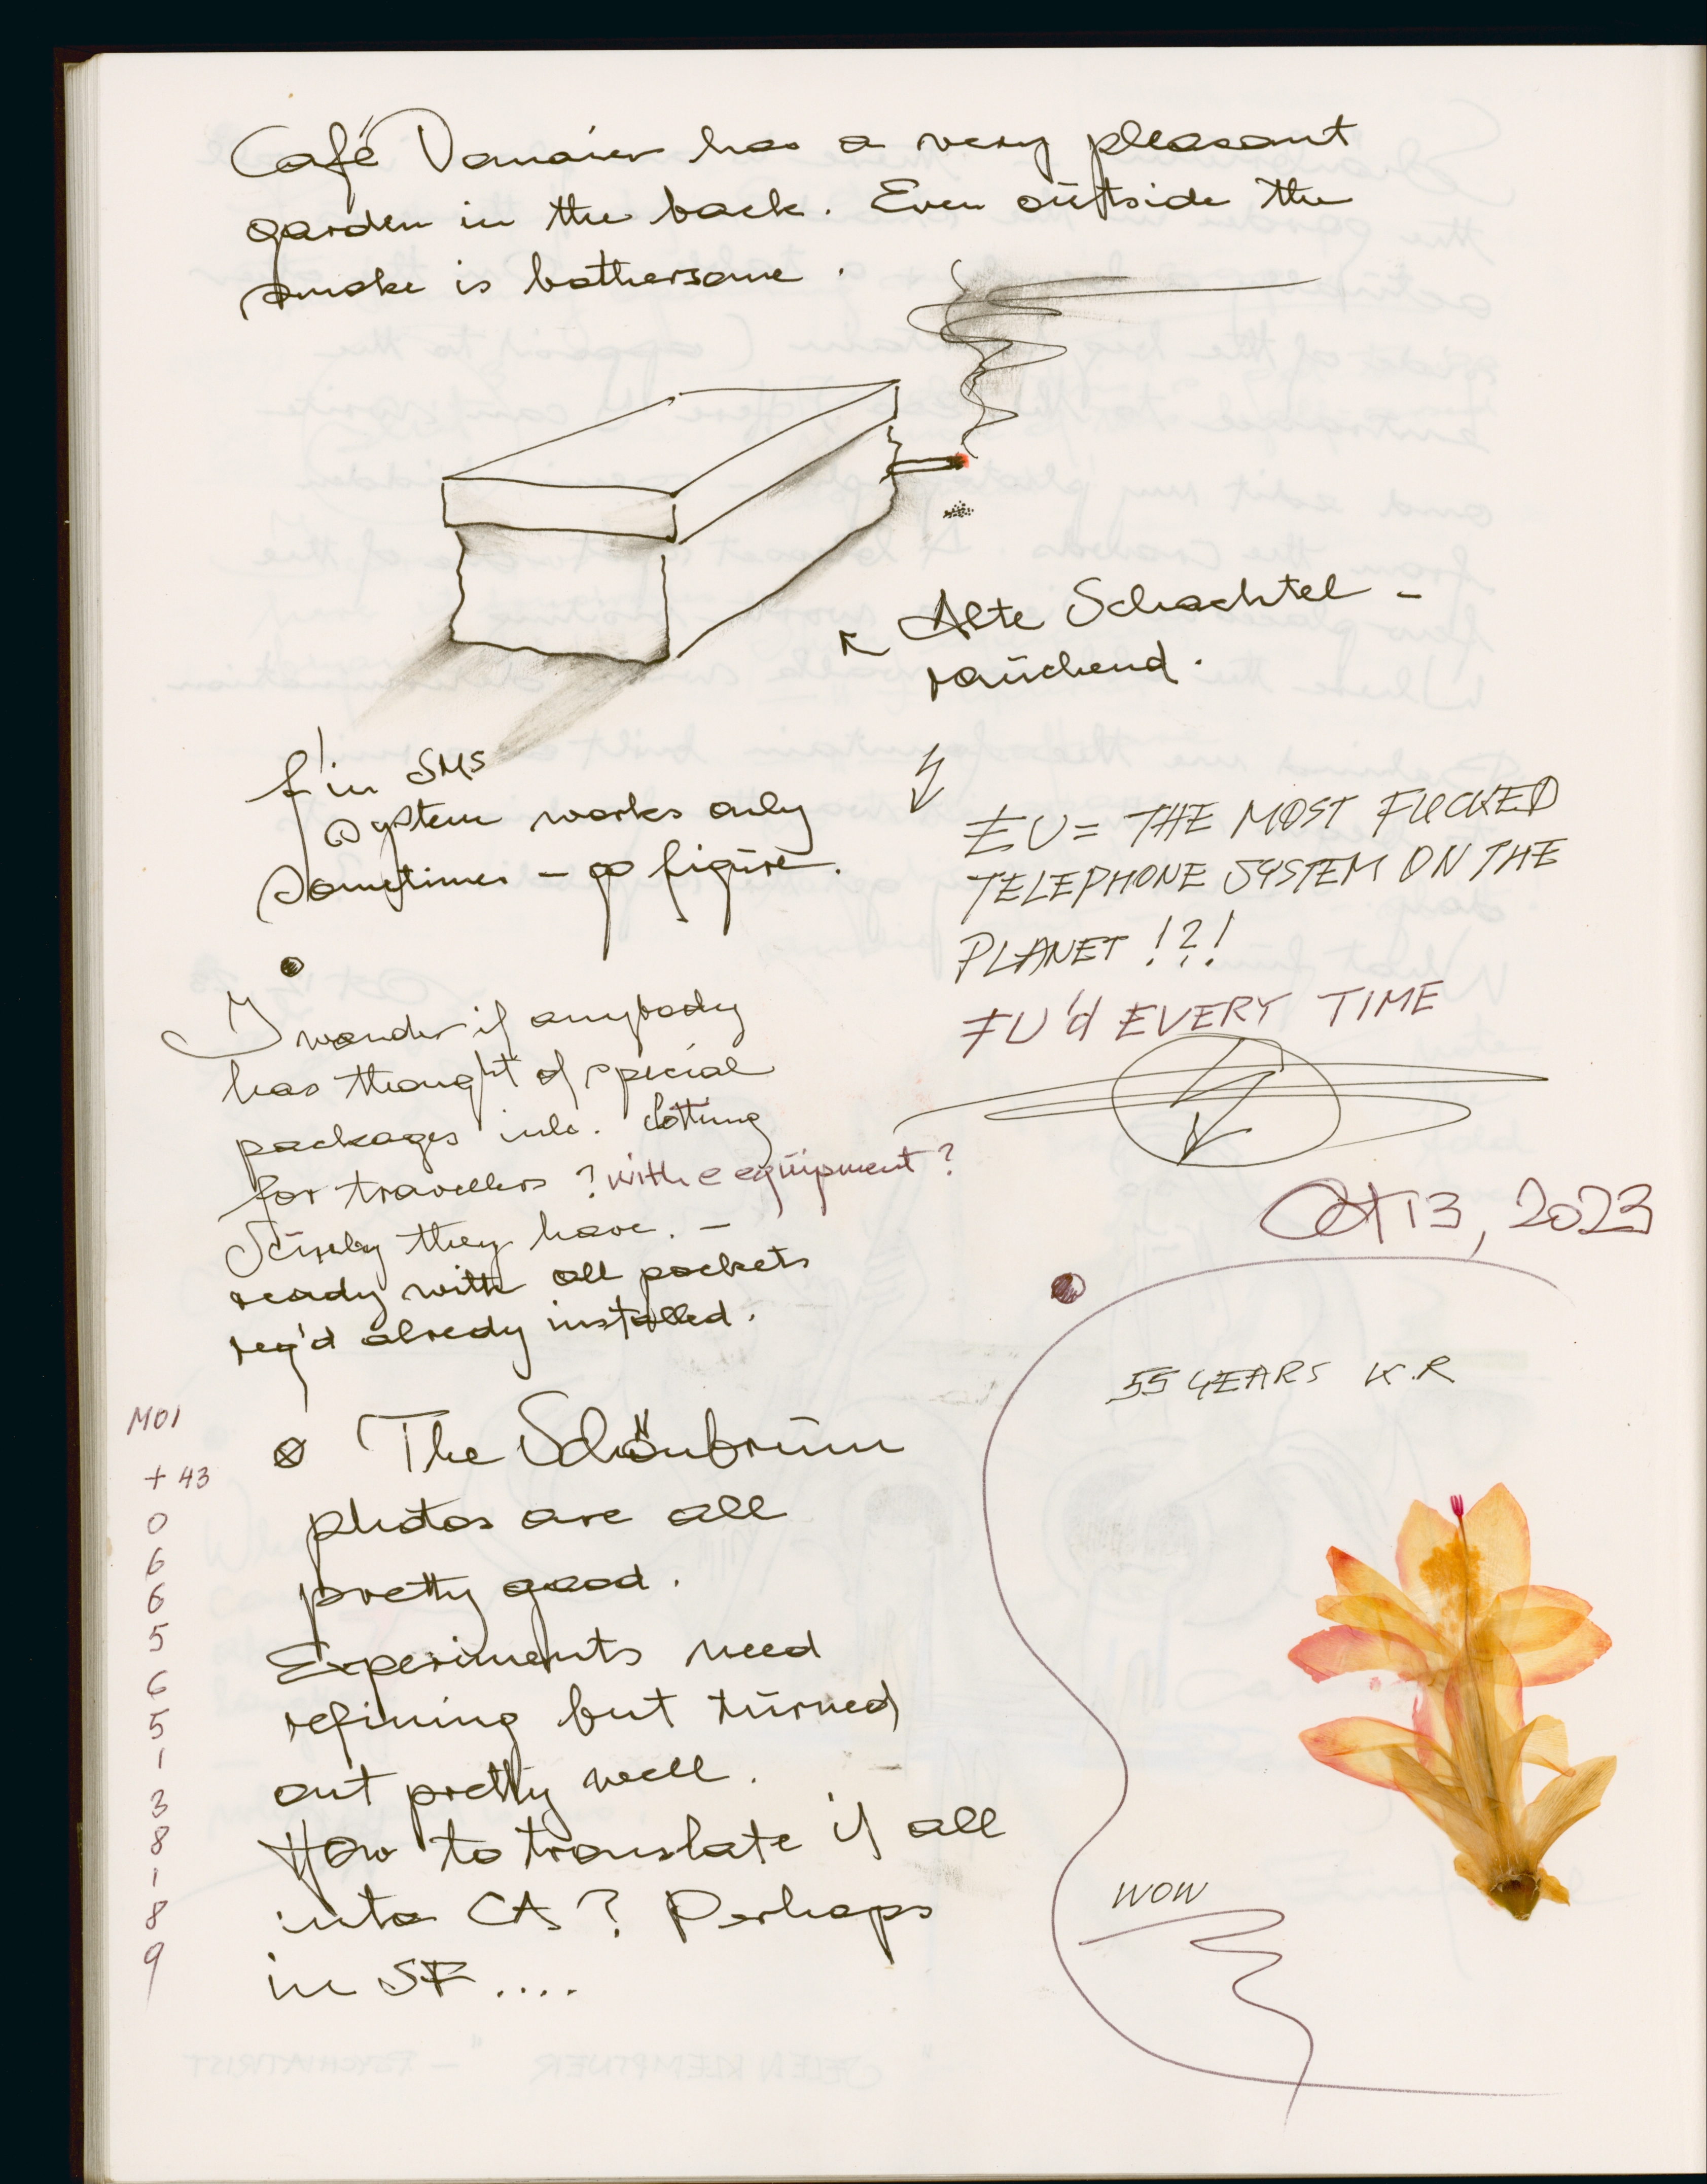 Café Domaier has a very pleasant
garden in the back. Even outside the
smoke is bothersome.
Alte Schachtel -
rauchend.
f'in SMS
system works only
sometimes - go figure.
EU = THE MOST FUCKED
TELEPHONE SYSTEM ON THE
PLANET !?!
FU'd EVERY TIME
I wonder if anybody
has thought of special
packages inlc. clothing
for travellers ? with e equipment ?
Surely they have. -
ready with all pockets
req'd alredy installed.
Oct 13, 2023
55 YEARS K.R
MOI
+ 43
0
6
6
5
6
5
1
3
8
1
8
9
The Schönbrunn
photos are all
pretty good.
Experiments need
refining but turned
out pretty well.
How to translate if all
into CA ? Perhaps
in SF ....
WOW